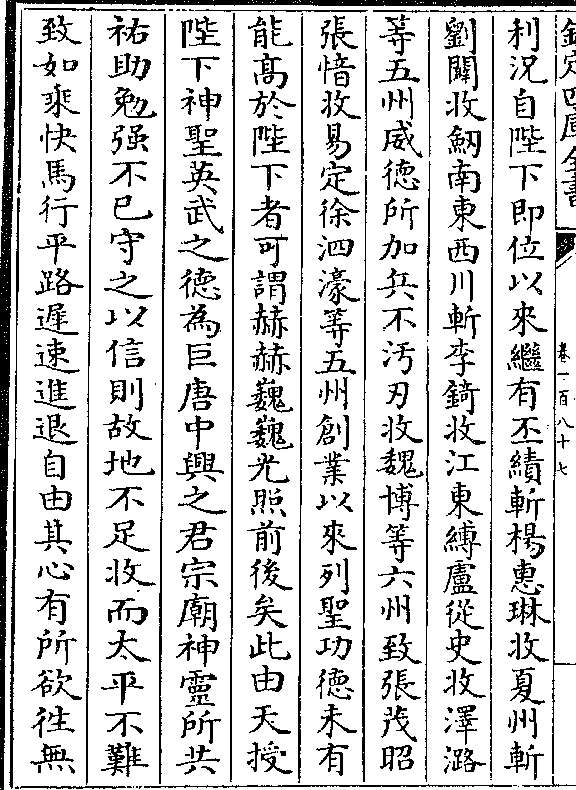 欽定四庫全書
卷一百八十七
利況自陛下即位以來繼有丕績斬楊惠琳收夏州斬
劉闢收劒南東西川斬李錡收江東縛盧從史收澤潞
等五州威德所加兵不汚刃收魏博等六州致張茂昭
張愔收易定徐泗濠等五州創業以來列聖功德未有
能髙於陛下者可謂赫赫巍巍光照前後矣此由天授
陛下神聖英武之德為巨唐中興之君宗廟神靈所共
祐助勉强不已守之以信則故地不足收而太平不難
致如乗快馬行平路遲速進退自由其心有所欲徃無